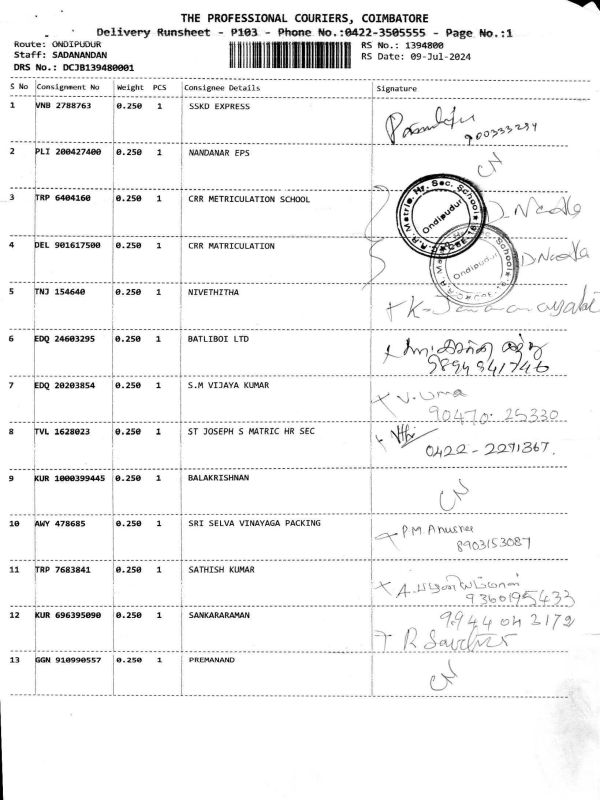 THE PROFESSIONAL COURIERS, COIMBATORE
Delivery Runsheet - P103 - Phone No.:0422-3505555 - Page No.:1
Route: ONDIPUDUR RS No.: 1394800
Staff: SADANANDAN RS Date: 09-Jul-2024
DRS No.: DCJB139480001
S No Consignment No Weight PCS Consignee Details Signature
1 VNB 2788763 0.250 1 SSKD EXPRESS
2 PLI 200427400 0.250 1 NANDANAR EPS CN
3 TRP 6404160 0.250 1 CRR METRICULATION SCHOOL
Ondipudur
4 DEL 901617500 0.250 1 CRR MATRICULATION
Ondipudur
5 TNJ 154640 0.250 1 NIVETHITHA
6 EDQ 24603295 0.250 1 BATLIBOI LTD
9894841746
7 EDQ 20203854 0.250 1 S.M VIJAYA KUMAR V. Uma
90470 25330
8 TVL 1628023 0.250 1 ST JOSEPH S MATRIC HR SEC
0422 - 2271367.
9 KUR 1000399445 0.250 1 BALAKRISHNAN CN
10 AWY 478685 0.250 1 SRI SELVA VINAYAGA PACKING P.M. Anusree
8903153087
11 TRP 7683841 0.250 1 SATHISH KUMAR
9360195433
12 KUR 696395090 0.250 1 SANKARARAMAN 9944043172
13 GGN 910990557 0.250 1 PREMANAND CN